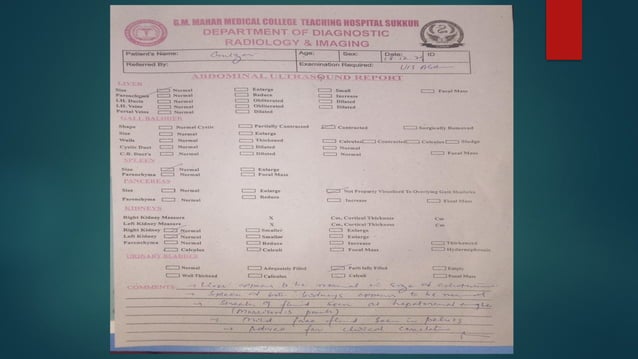 G.M. MAHAR MEDICAL COLLEGE TEACHING HOSPITAL SUKKUR
DEPARTMENT OF DIAGNOSTIC
RADIOLOGY & IMAGING
Patient's Name: Age: Sex: Date: ID
Referred By: Examination Required: U/S Abd
ABDOMINAL ULTRASOUND REPORT
LIVER
Size Normal Enlarge Small Focal Mass
Parenchyma Normal Reduce Increase
I.H. Ducts Normal Obliterated Dilated
I.H. Veins Normal Obliterated Dilated
Portal Veins Normal Dilated
GALL BALDDER
Shape Normal Cystic Partially Contracted Contracted Surgically Removed
Size Normal Enlarge
Walls Normal Thickened Calculus Contracted Calculus Sludge
Cystic Duct Normal Dilated Normal
C.B. Duct's Normal Dilated Normal Focal Mass
SPLEEN
Size Normal Enlarge
Parenchyma Normal Focal Mass
PANCEREAS
Size Normal Enlarge Not Properly Visualized To Overying Gass Shadows
Parenchyma Normal Reduce Increase Focal Mass
KIDNEYS
Right Kidney Measure X Cm, Cortical Thickness Cm
Left Kidney Measure X Cm, Cortical Thickness Cm
Right Kidney Normal Smaller Enlarge
Left Kidney Normal Smaller Enlarge
Parenchyma Normal Reduce Increase Thickened
Calculus Calculi Focal Mass Hydernephrosis
URINARY BLADDER
Normal Adequately Filled Partially Filled Empty
Wall Thickend Calculus Calculi Focal Mass
COMMENTS: → Liver appears to be normal in size &
→ Spleen & both kidneys appears to be normal
→ of fluid seen at hepatorenal angle
(Morrison's pouch)
→ Mild free fluid seen in pelvis
→ Advised for clinical correlation